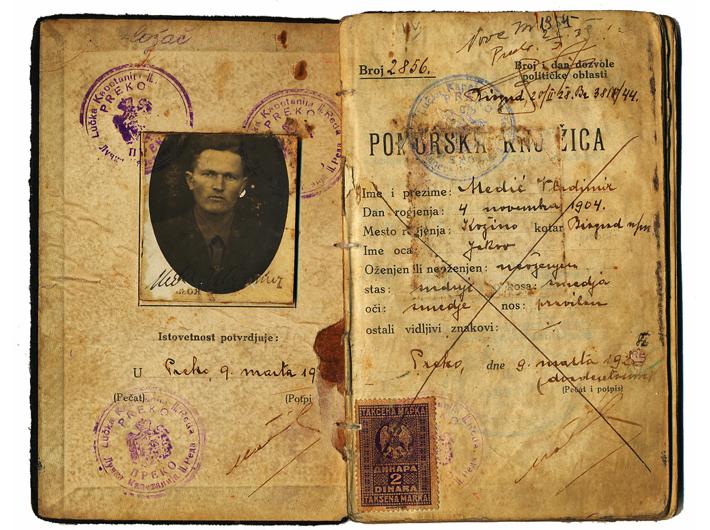 Ložač
Lučka Kapetanija II. Reda
PREKO
ПРЕКО
Istovetnost potvrdjuje:
U Preko, 9. marta 19
(Pečat) (Potpi
Lučka Kapetanija II. Reda
PREKO
ПРЕКО
Лучка Капетанија II. Реда
Broj 2856.
Broj i dan dozvole
političke oblasti
Biograd 20/II 28. Br.
POMORSKA KNJIŽICA
Ime i prezime: Medić Vladimir
Dan rogjenja: 4 novembra 1904.
Mesto rogjenja: Kožino kotar Biograd n/m
Ime oca: Jakov
Oženjen ili neoženjen: neoženjen
stas: srednji kosa: smedja
oči: smedje nos: pravilan
ostali vidljivi znakovi:
Preko, dne 9. marta 192
(Pečat i potpis)
TAKSENA MARKA
ДИНАРА
2
DINARA
TAKSENA MARKA